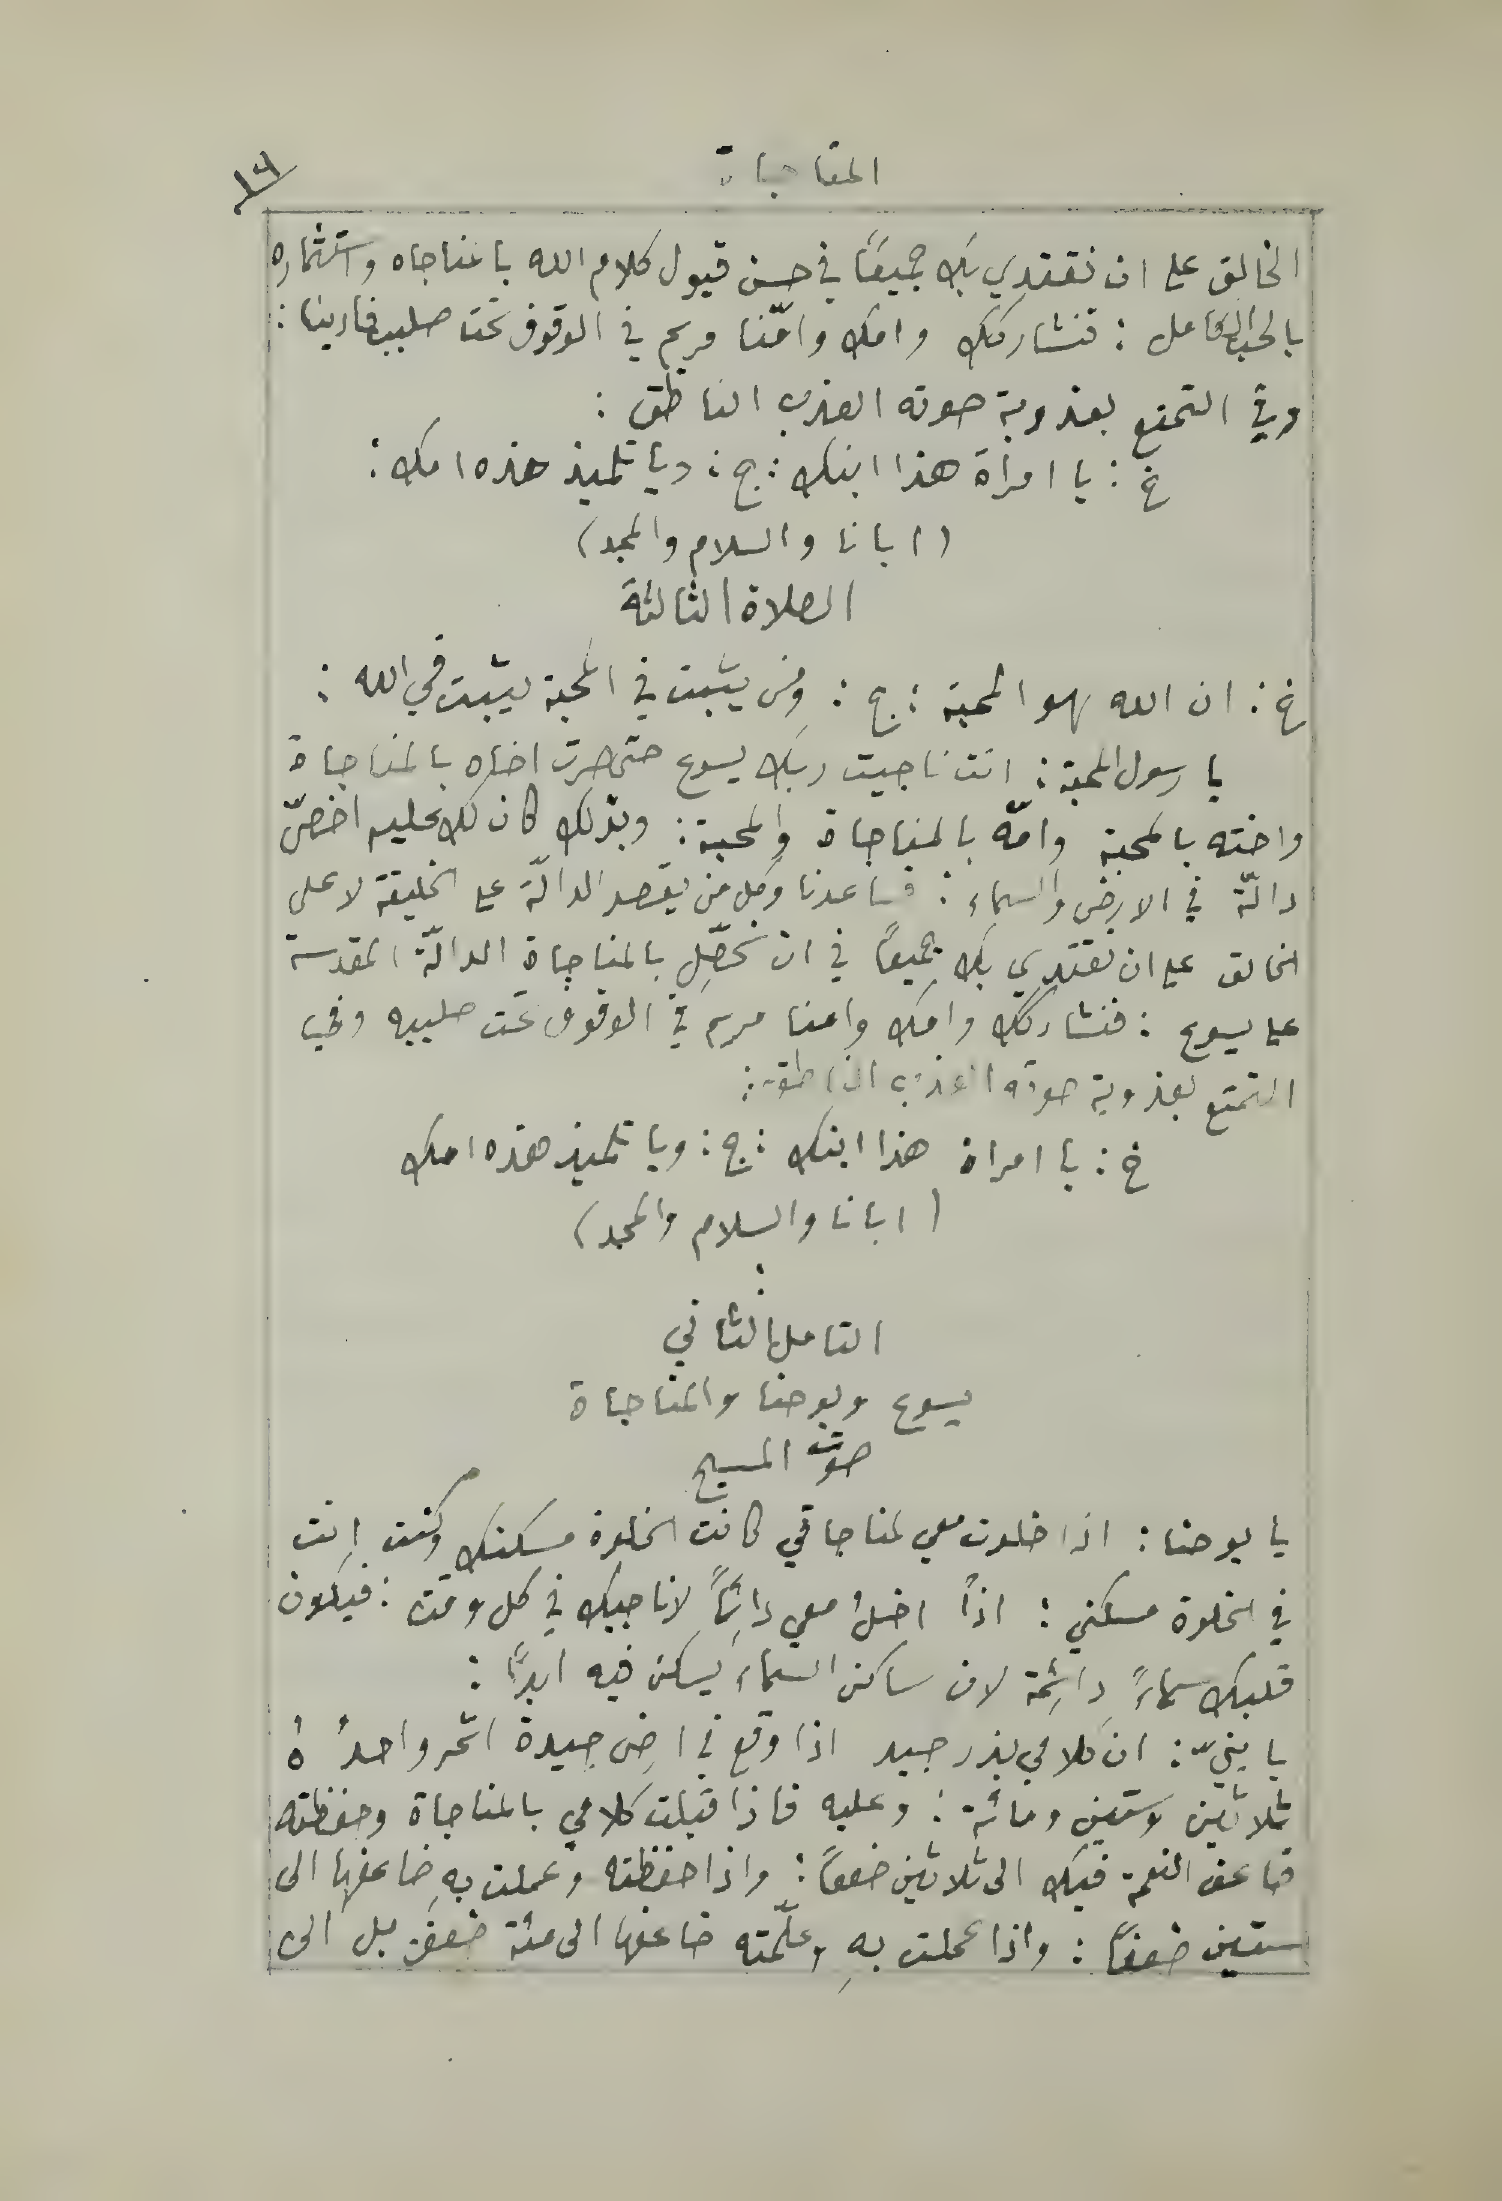 المناجاة
١٦
الخالق على ان نقتدي بك جميعًا في حسن قبول كلام الله بالمناجاه واستثماره
بالحب الكامل : فنشاركك وامك وامّنا مريم في الوقوف تحت صليب فادينا :
وفي التمتع بعذوبة صوته العذب الناطق :
خ : يا امرأة هذا ابنك : ج : ويا تلميذ هذه امك :
( ابانا والسلام والمجد )
الصلاة الثالثة
خ : ان الله هو المحبة : ج : ومن يثبت في المحبة يثبت في الله :
يا رسول المحبة : انت ناجيت ربك يسوع حتى صرت اخاه بالمناجاة
واخته بالمحبة وامّه بالمناجاة والمحبة : وبذلك كان لك عليه اخصّ
دالّة في الارض والسماء : فساعدنا وكل من يقصد الدالّة على الخليقة لا على
الخالق على ان نقتدي بك جميعًا في ان نحصّل بالمناجاة الدالّة المقدسة
على يسوع : فنشاركك وامك وامنا مريم في الوقوف تحت صليبه وفي
التمتع بعذوبة صوته العذب الناطق :
خ : يا امراة هذا ابنك : ج : ويا تلميذ هذه امك
( ابانا والسلام والمجد )
التامل الثاني
يسوع ويوحنا والمناجاة
صوت المسيح
يا يوحنا : اذا خلوت معي لمناجاتي كانت الخلوة مسكنك وكنت انت
في الخلوة مسكني : اذاً اخلُ معي دائماً لاناجيك في كل وقت : فيكون
قلبك سماءً دائمة لان ساكن السماء يسكن فيه ابدًا :
يا بنيّ : ان كلامي بذر جيد اذا وقع في ارض جيدة اثمر واحدُهُ
ثلاثين وستين ومائة : وعليه فاذا قبلت كلامي بالمناجاة وحفظته
ضاعف النعمة فيك الى ثلاثين ضعفاً : واذا حفظته وعملت بهِ ضاعفها الى
ستين ضعفاً : واذا عملت بهِ وعلّمته ضاعفها الى مئة ضعف بل الى